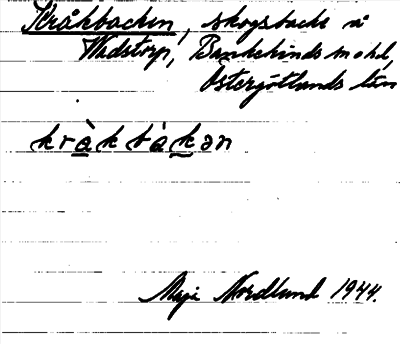 Kråkbacken, skogsbacke å
Wadstorp, Bankekinds n o hd,
Östergötlands län
kràkbàkən
Maja Nordlund 1944.